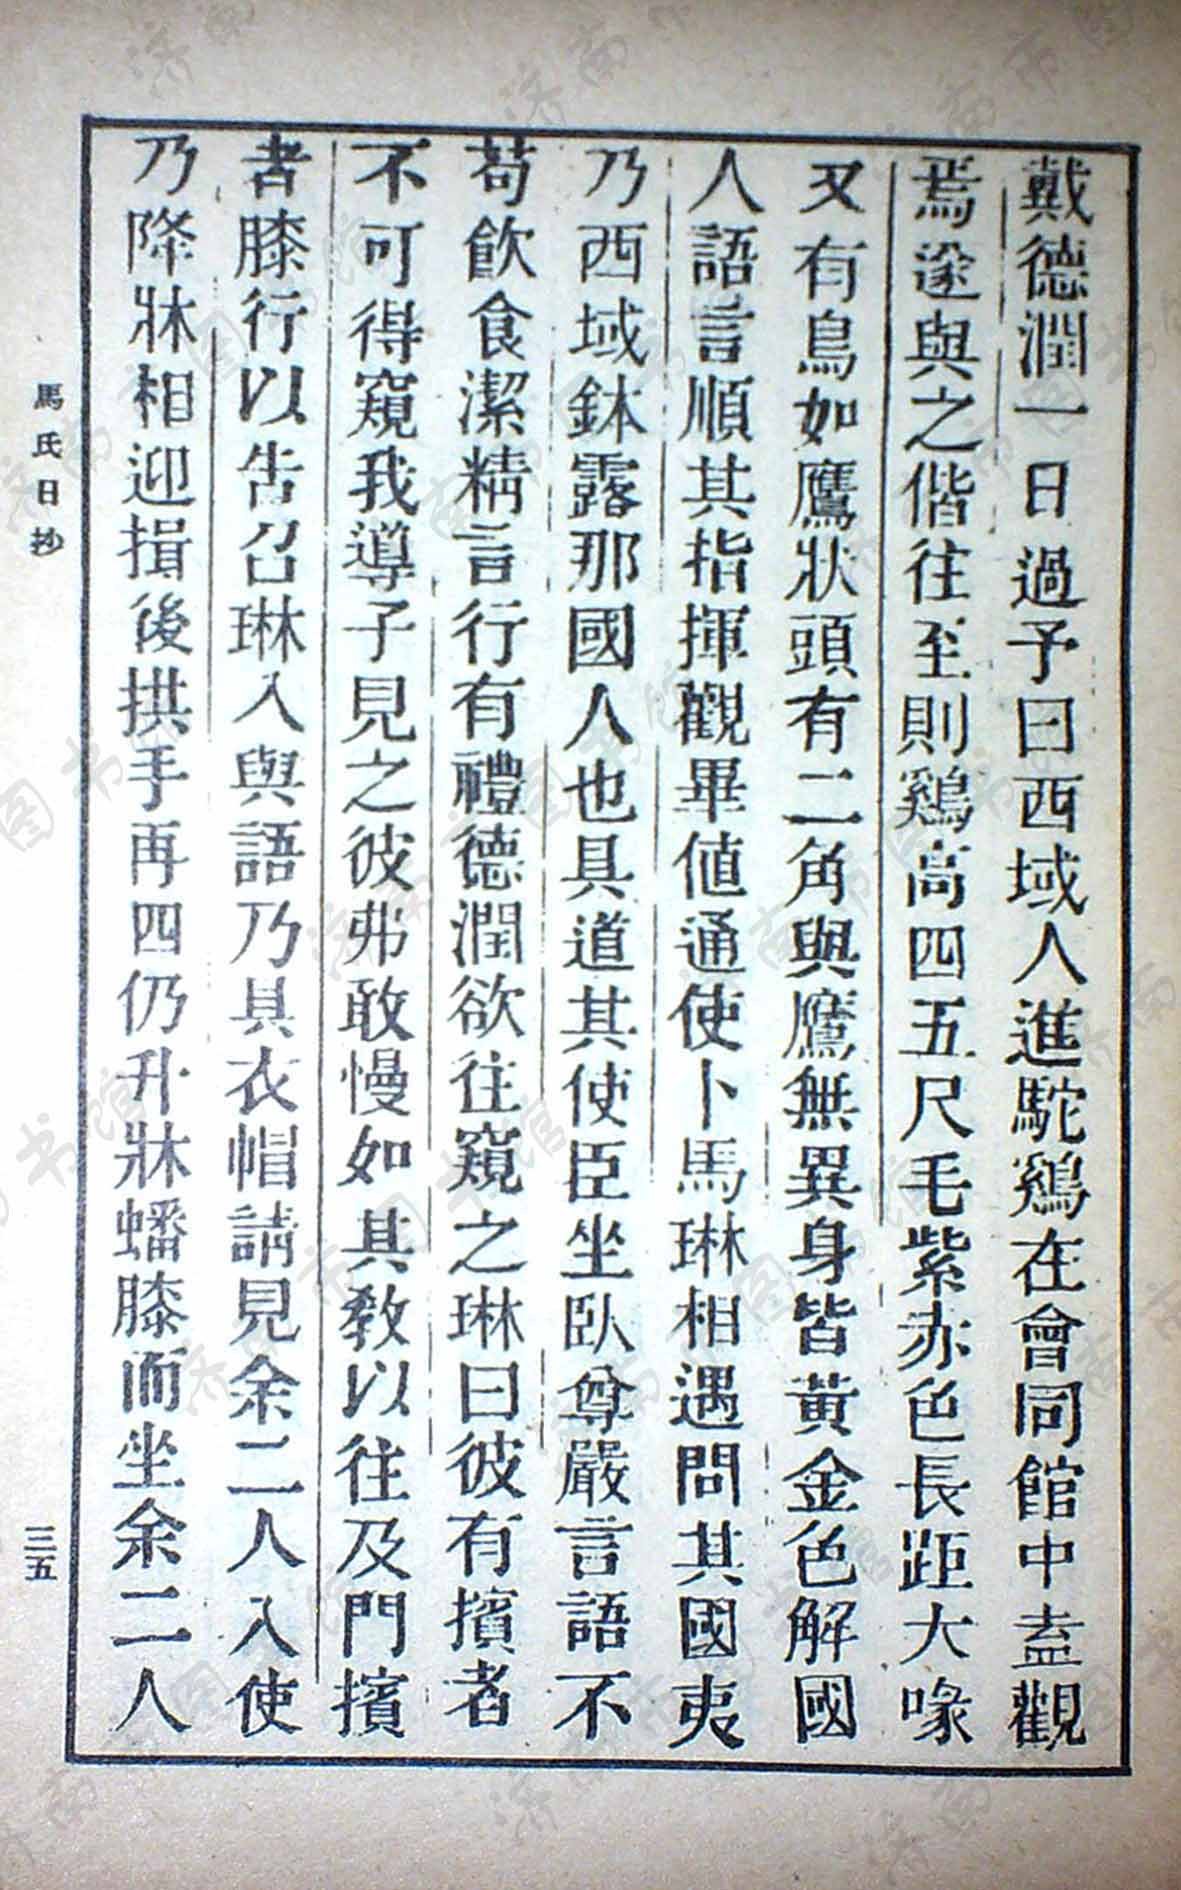 戴德潤一日過予曰西域人進駝鷄在會同館中盍觀
焉遂與之偕往至則鷄高四五尺毛紫赤色長距大喙
又有鳥如鷹狀頭有二角與鷹無異身皆黃金色解國
人語言順其指揮觀畢値通使卜馬琳相遇問其國夷
乃西域鉢露那國人也具道其使臣坐臥尊嚴言語不
苟飲食潔精言行有禮德潤欲往窺之琳曰彼有擯者
不可得窺我導子見之彼弗敢慢如其教以往及門擯
者膝行以告召琳入與語乃具衣帽請見余二人入使
乃降牀相迎揖後拱手再四仍升牀蟠膝而坐余二人
馬氏日抄
三五
济南市图书馆